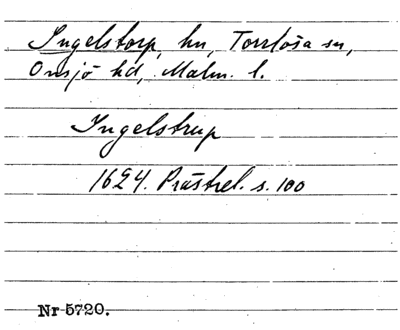 Ingelstorp, hn, Torrlösa sn,
Onsjö hd, Malm. l.
Ingelstrup
1624. Prästrel. s. 100
Nr 5720.